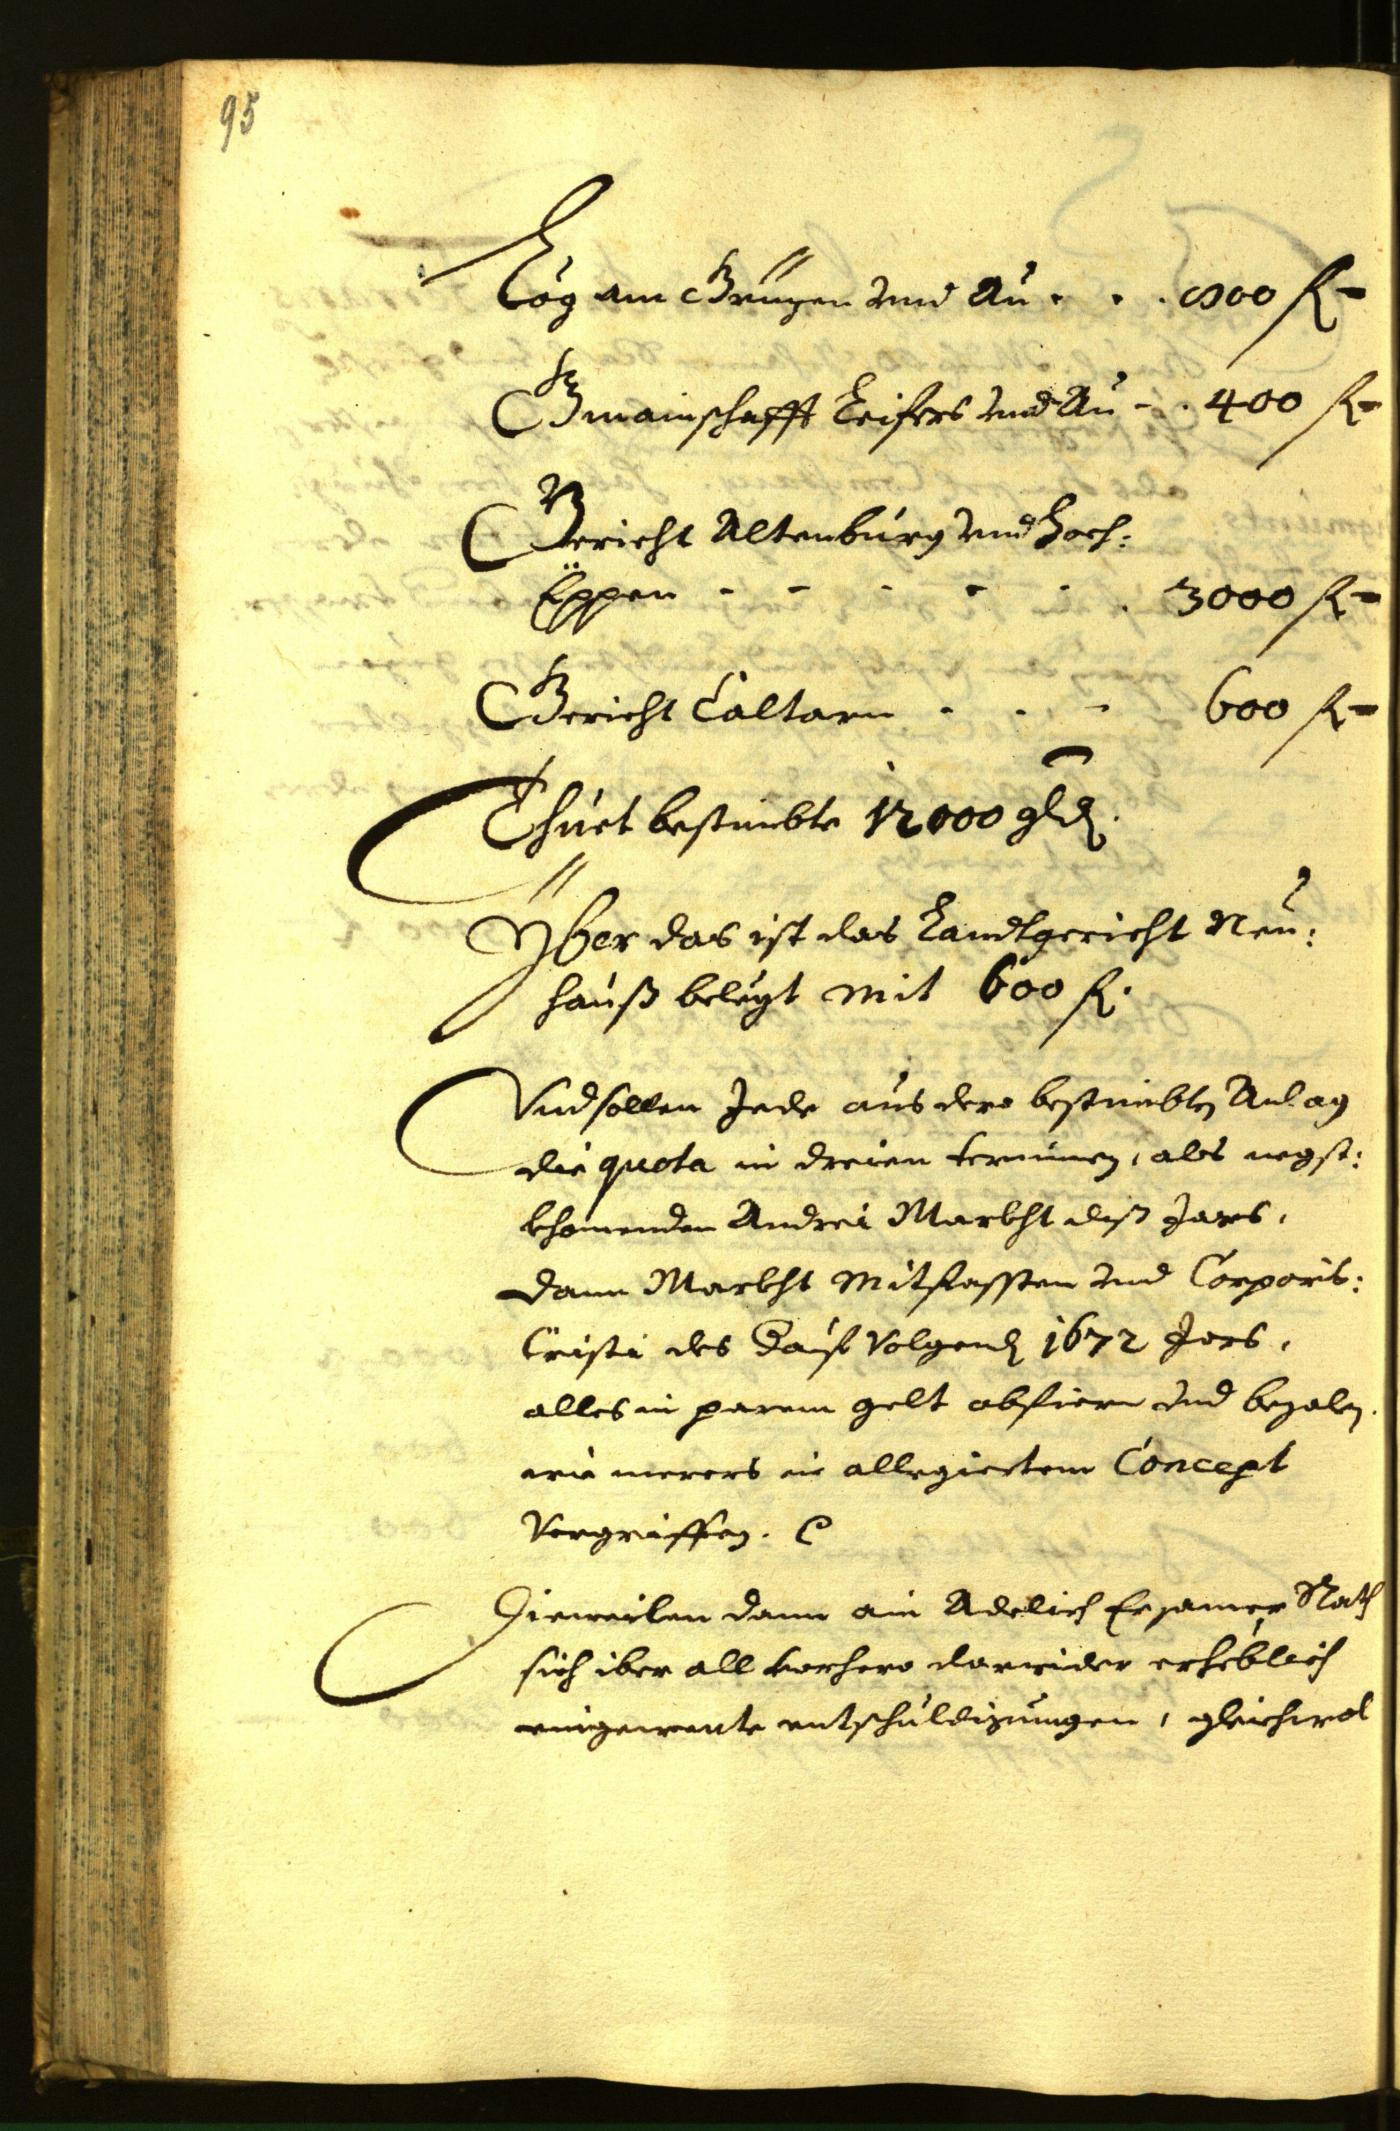 95
Eög am Grüzen vnd Au . . . 800 fl -
Gmainschafft Leifers vnd Au - . 400 fl -
Gericht Altenburg vnd Hoch:
Eppan - - - - . . 3000 fl -
Gericht Caltarn - - - 600 fl -
Thuet bestimbte 12000 gld.
Yber das ist das Landtgericht Neu:
hauß belegt mit 600 fl.
Vnd sollen Jede aus dero bestimbten Anlag
die quota in dreien terminen, als negst:
khomenden Andrei Markht diß Jars,
dann Markht Mitfassten vnd Corporis:
Cristi des darauf Volgend 1672 Jars,
alles in parem gelt abfiern vnd bezalen.
wie merers in allegiertem Concept
Vergriffen.
Dieweilen dann ain Adelich Ersamer Rath
sich iber all vorhero darwider erheblich
eingewente entschuldigungen, gleichwol